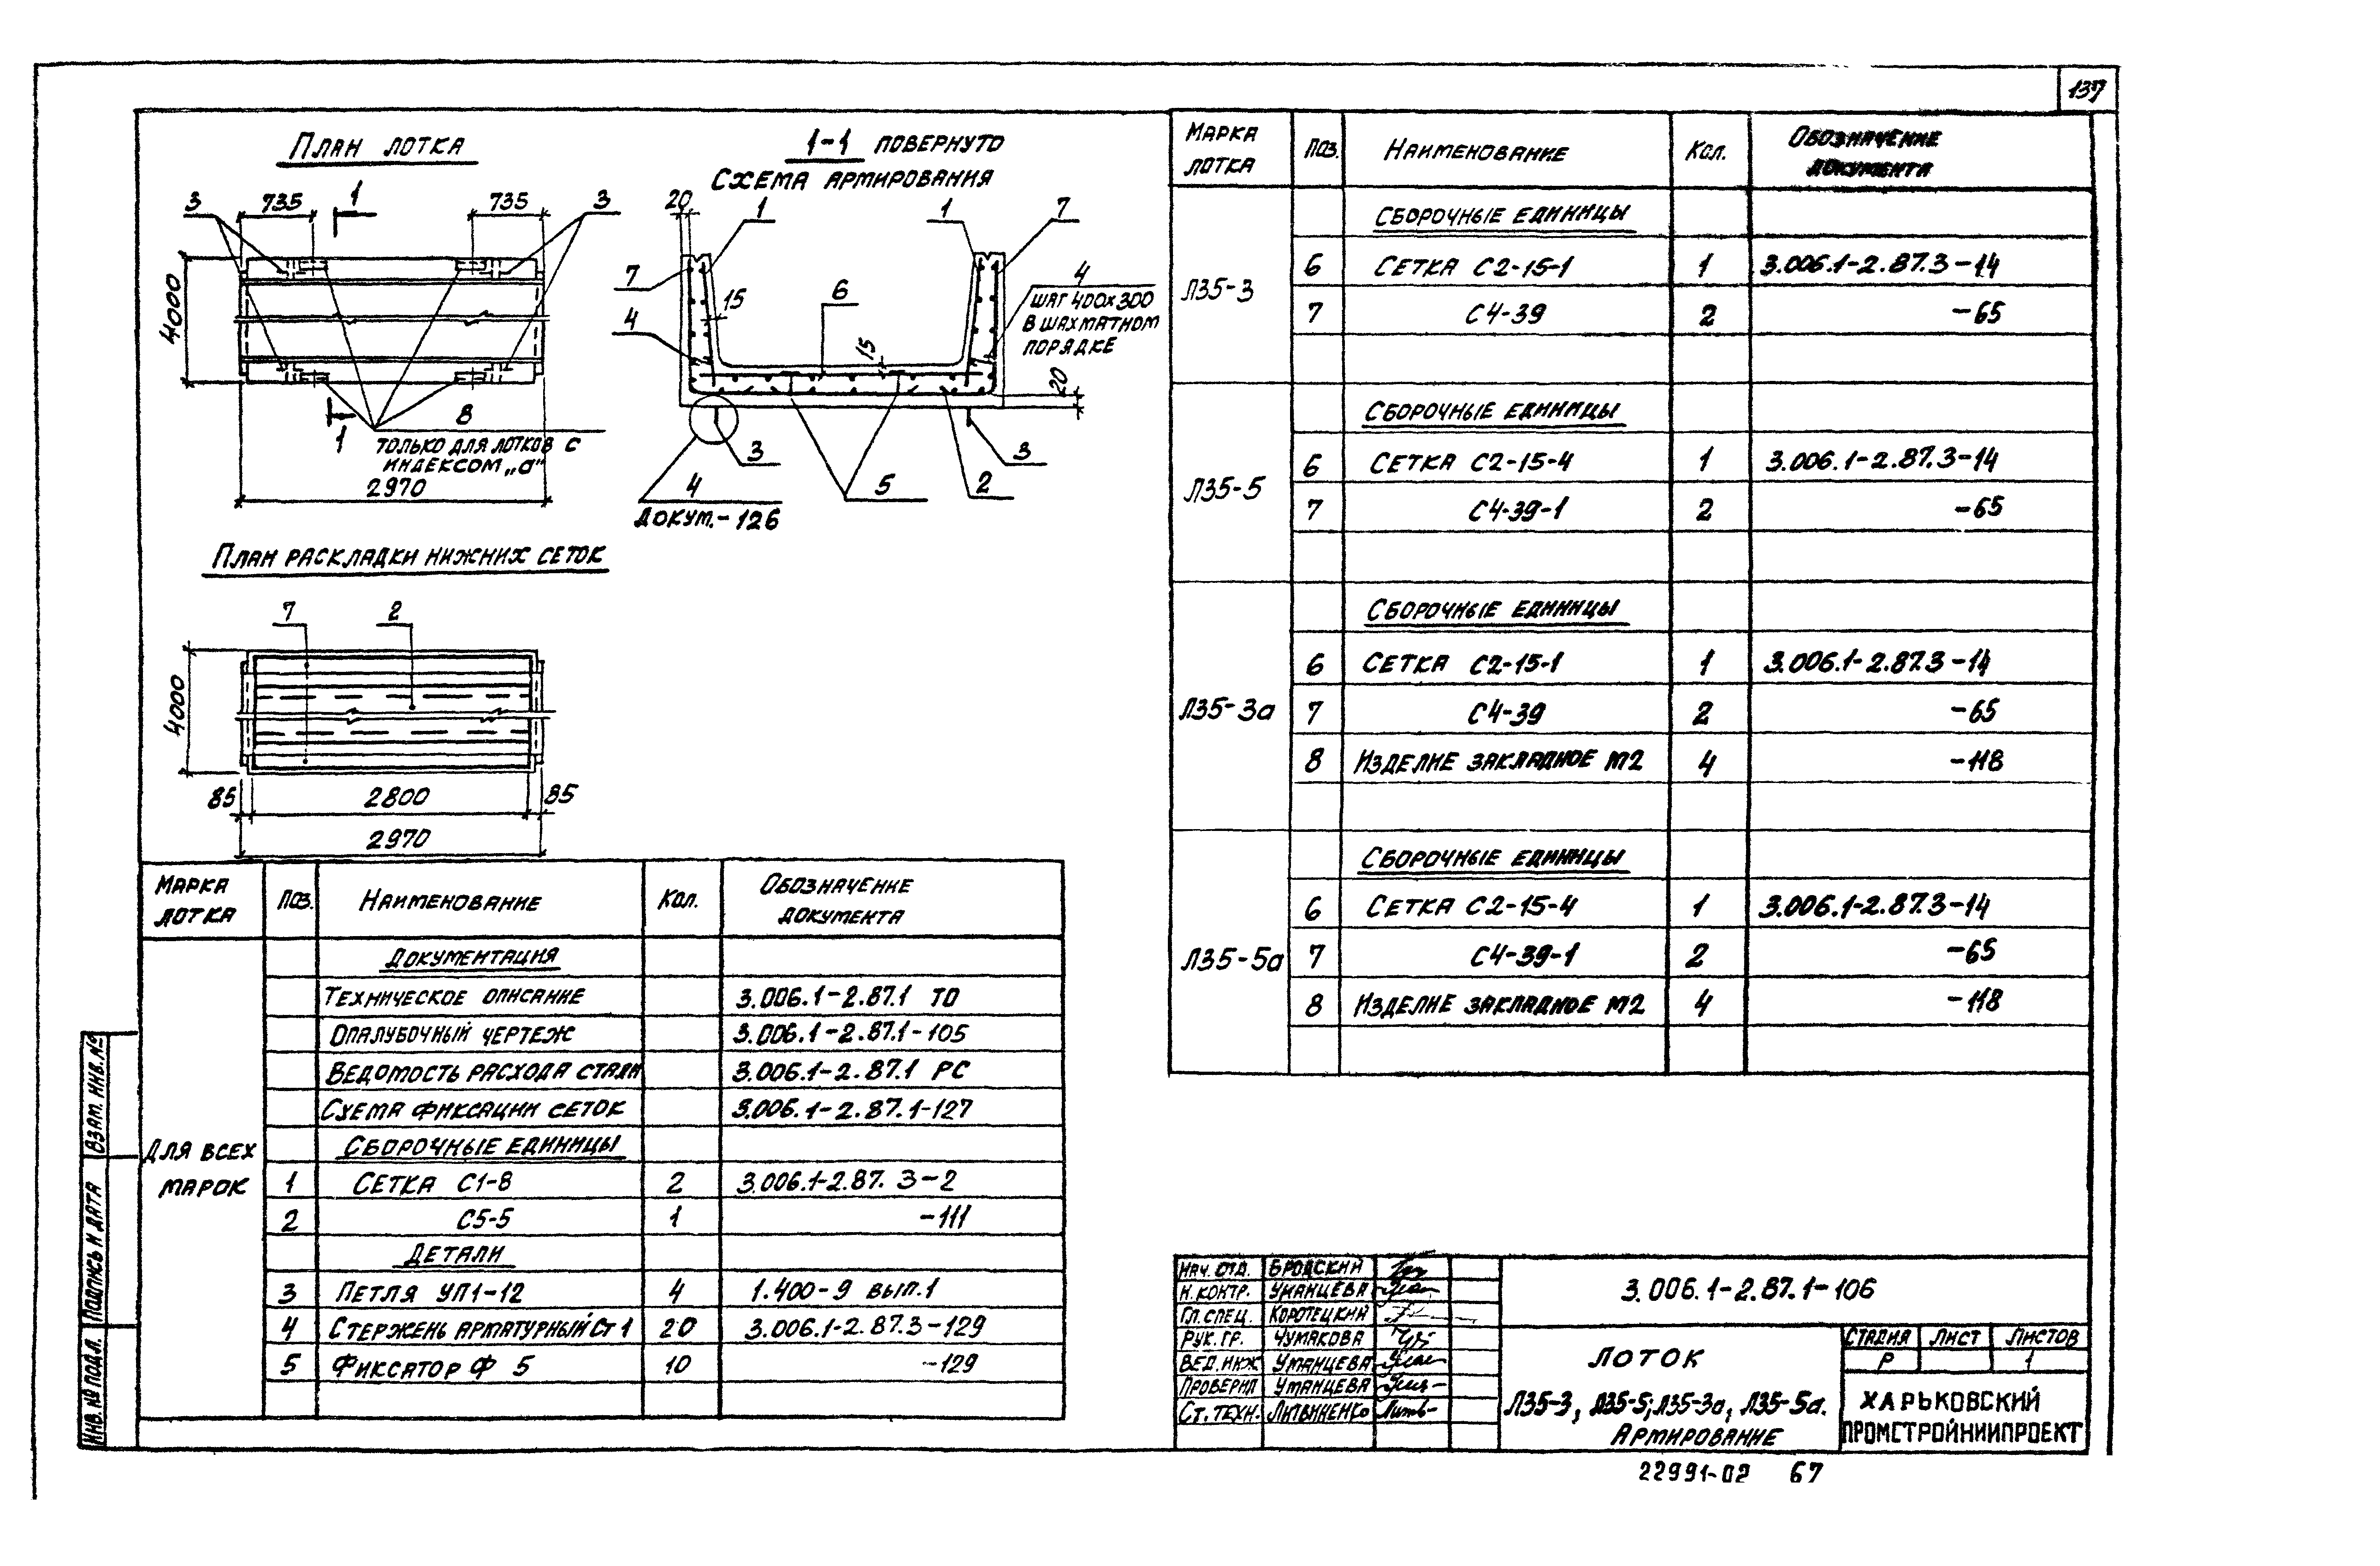 137
План лотка
3 735 1 735 3
4000
1
8
только для лотков с
индексом „а"
2970
1-1 повернуто
Схема армирования
20 1 1 7
7 15 6 4
шаг 400х300
в шахматном
порядке
4 15 20
3 3
4 5 2
докум.-126
План раскладки нижних сеток
7 2
4000
85 2800 85
2970
Марка лотка Поз. Наименование Кол. Обозначение документа
Для всех марок
Документация
Техническое описание 3.006.1-2.87.1 ТО
Опалубочный чертеж 3.006.1-2.87.1-105
Ведомость расхода стали 3.006.1-2.87.1 РС
Схема фиксации сеток 3.006.1-2.87.1-127
Сборочные единицы
1 Сетка С1-8 2 3.006.1-2.87.3-2
2 С5-5 1 -111
Детали
3 Петля УП1-12 4 1.400-9 вып.1
4 Стержень арматурный Ст 1 20 3.006.1-2.87.3-129
5 Фиксатор Ф 5 10 -129
Марка лотка Поз. Наименование Кол. Обозначение документа
Л35-3
Сборочные единицы
6 Сетка С2-15-1 1 3.006.1-2.87.3-14
7 С4-39 2 -65
Л35-5
Сборочные единицы
6 Сетка С2-15-4 1 3.006.1-2.87.3-14
7 С4-39-1 2 -65
Л35-3а
Сборочные единицы
6 Сетка С2-15-1 1 3.006.1-2.87.3-14
7 С4-39 2 -65
8 Изделие закладное М2 4 -118
Л35-5а
Сборочные единицы
6 Сетка С2-15-4 1 3.006.1-2.87.3-14
7 С4-39-1 2 -65
8 Изделие закладное М2 4 -118
Нач. отд. Бродский
Н. контр. Уманцева
Гл. спец. Коротецкий
Рук. гр. Чумакова
Вед. инж Уманцева
Проверил Уманцева
Ст. техн. Литвиненко
3.006.1-2.87.1-106
Лоток
Л35-3, Л35-5; Л35-3а, Л35-5а.
Армирование
Стадия Лист Листов
Р 1
Харьковский
Промстройниипроект
22991-02 67
Взам. инв. №
Подпись и дата
Инв. № подл.